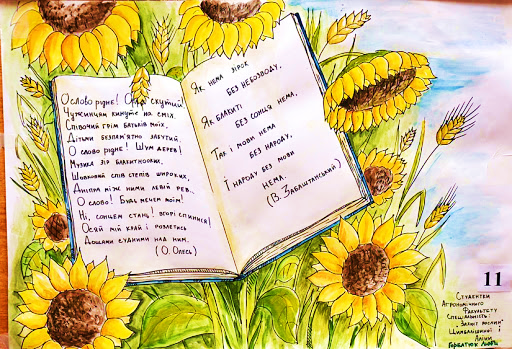 О слово рідне! Орле скутий!
Чужинцям кинуте на сміх.
Співочий грім батьків моїх,
Дітьми безпам'ятно забутий.
О слово рідне! Шум дерев!
Музика зір блакитнооких,
Шовковий спів степів широких,
Дніпра між ними левій рев..
О слово! Будь мечем моїм!
Ні, сонцем стань! вгорі спинися!
Осяй мій край і розлетись
Дощами судними над ним.
(О. Олесь)
Як нема зірок
без небозводу,
Як блакиті
без сонця нема,
Так і мови нема
без народу,
Ї народу без мови
нема.
(В. Забаштанський)
11
Студентки
Агрономічного
Факультету
Спеціальність:
"Захист рослин"
Цимбалішиної
Аліни